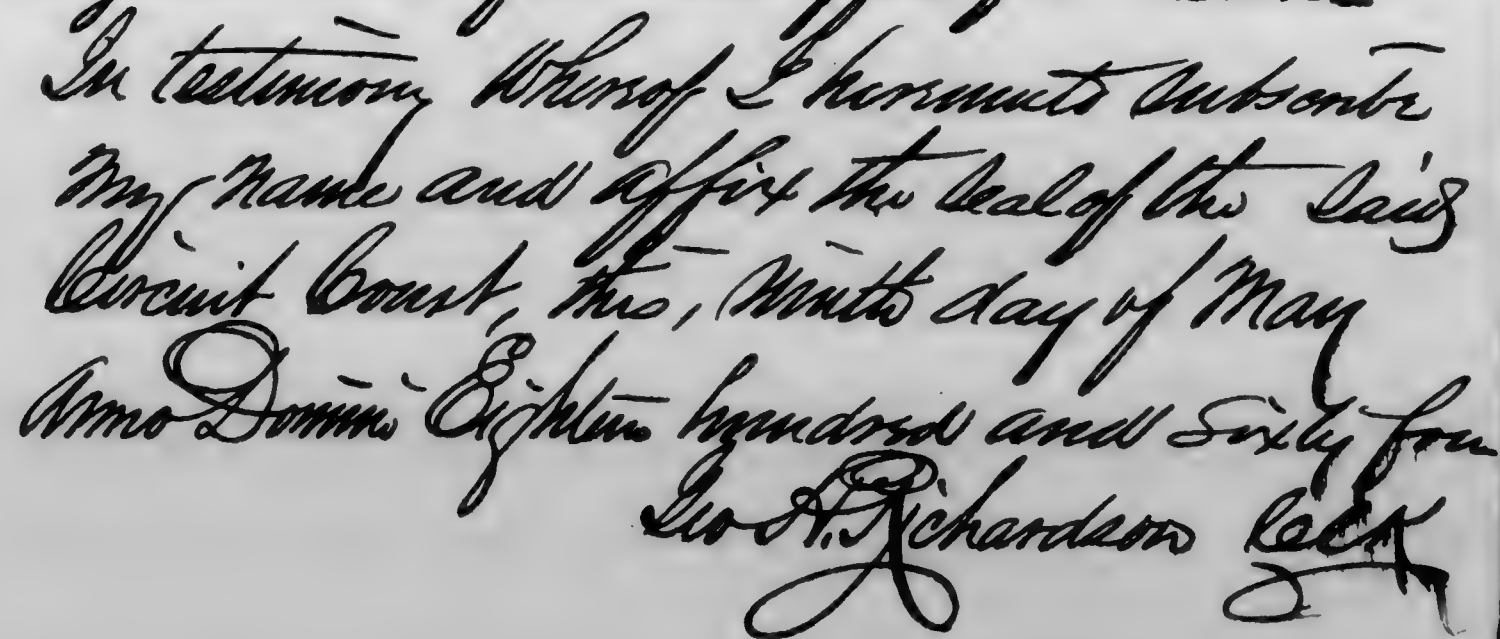 In testimony Whereof I hereunto Subscribe
My name and affix the Seal of the Said
Circuit Court, this, Ninth day of May
Anno Domini Eighteen hundred and Sixty four
Geo H. Richardson Clerk